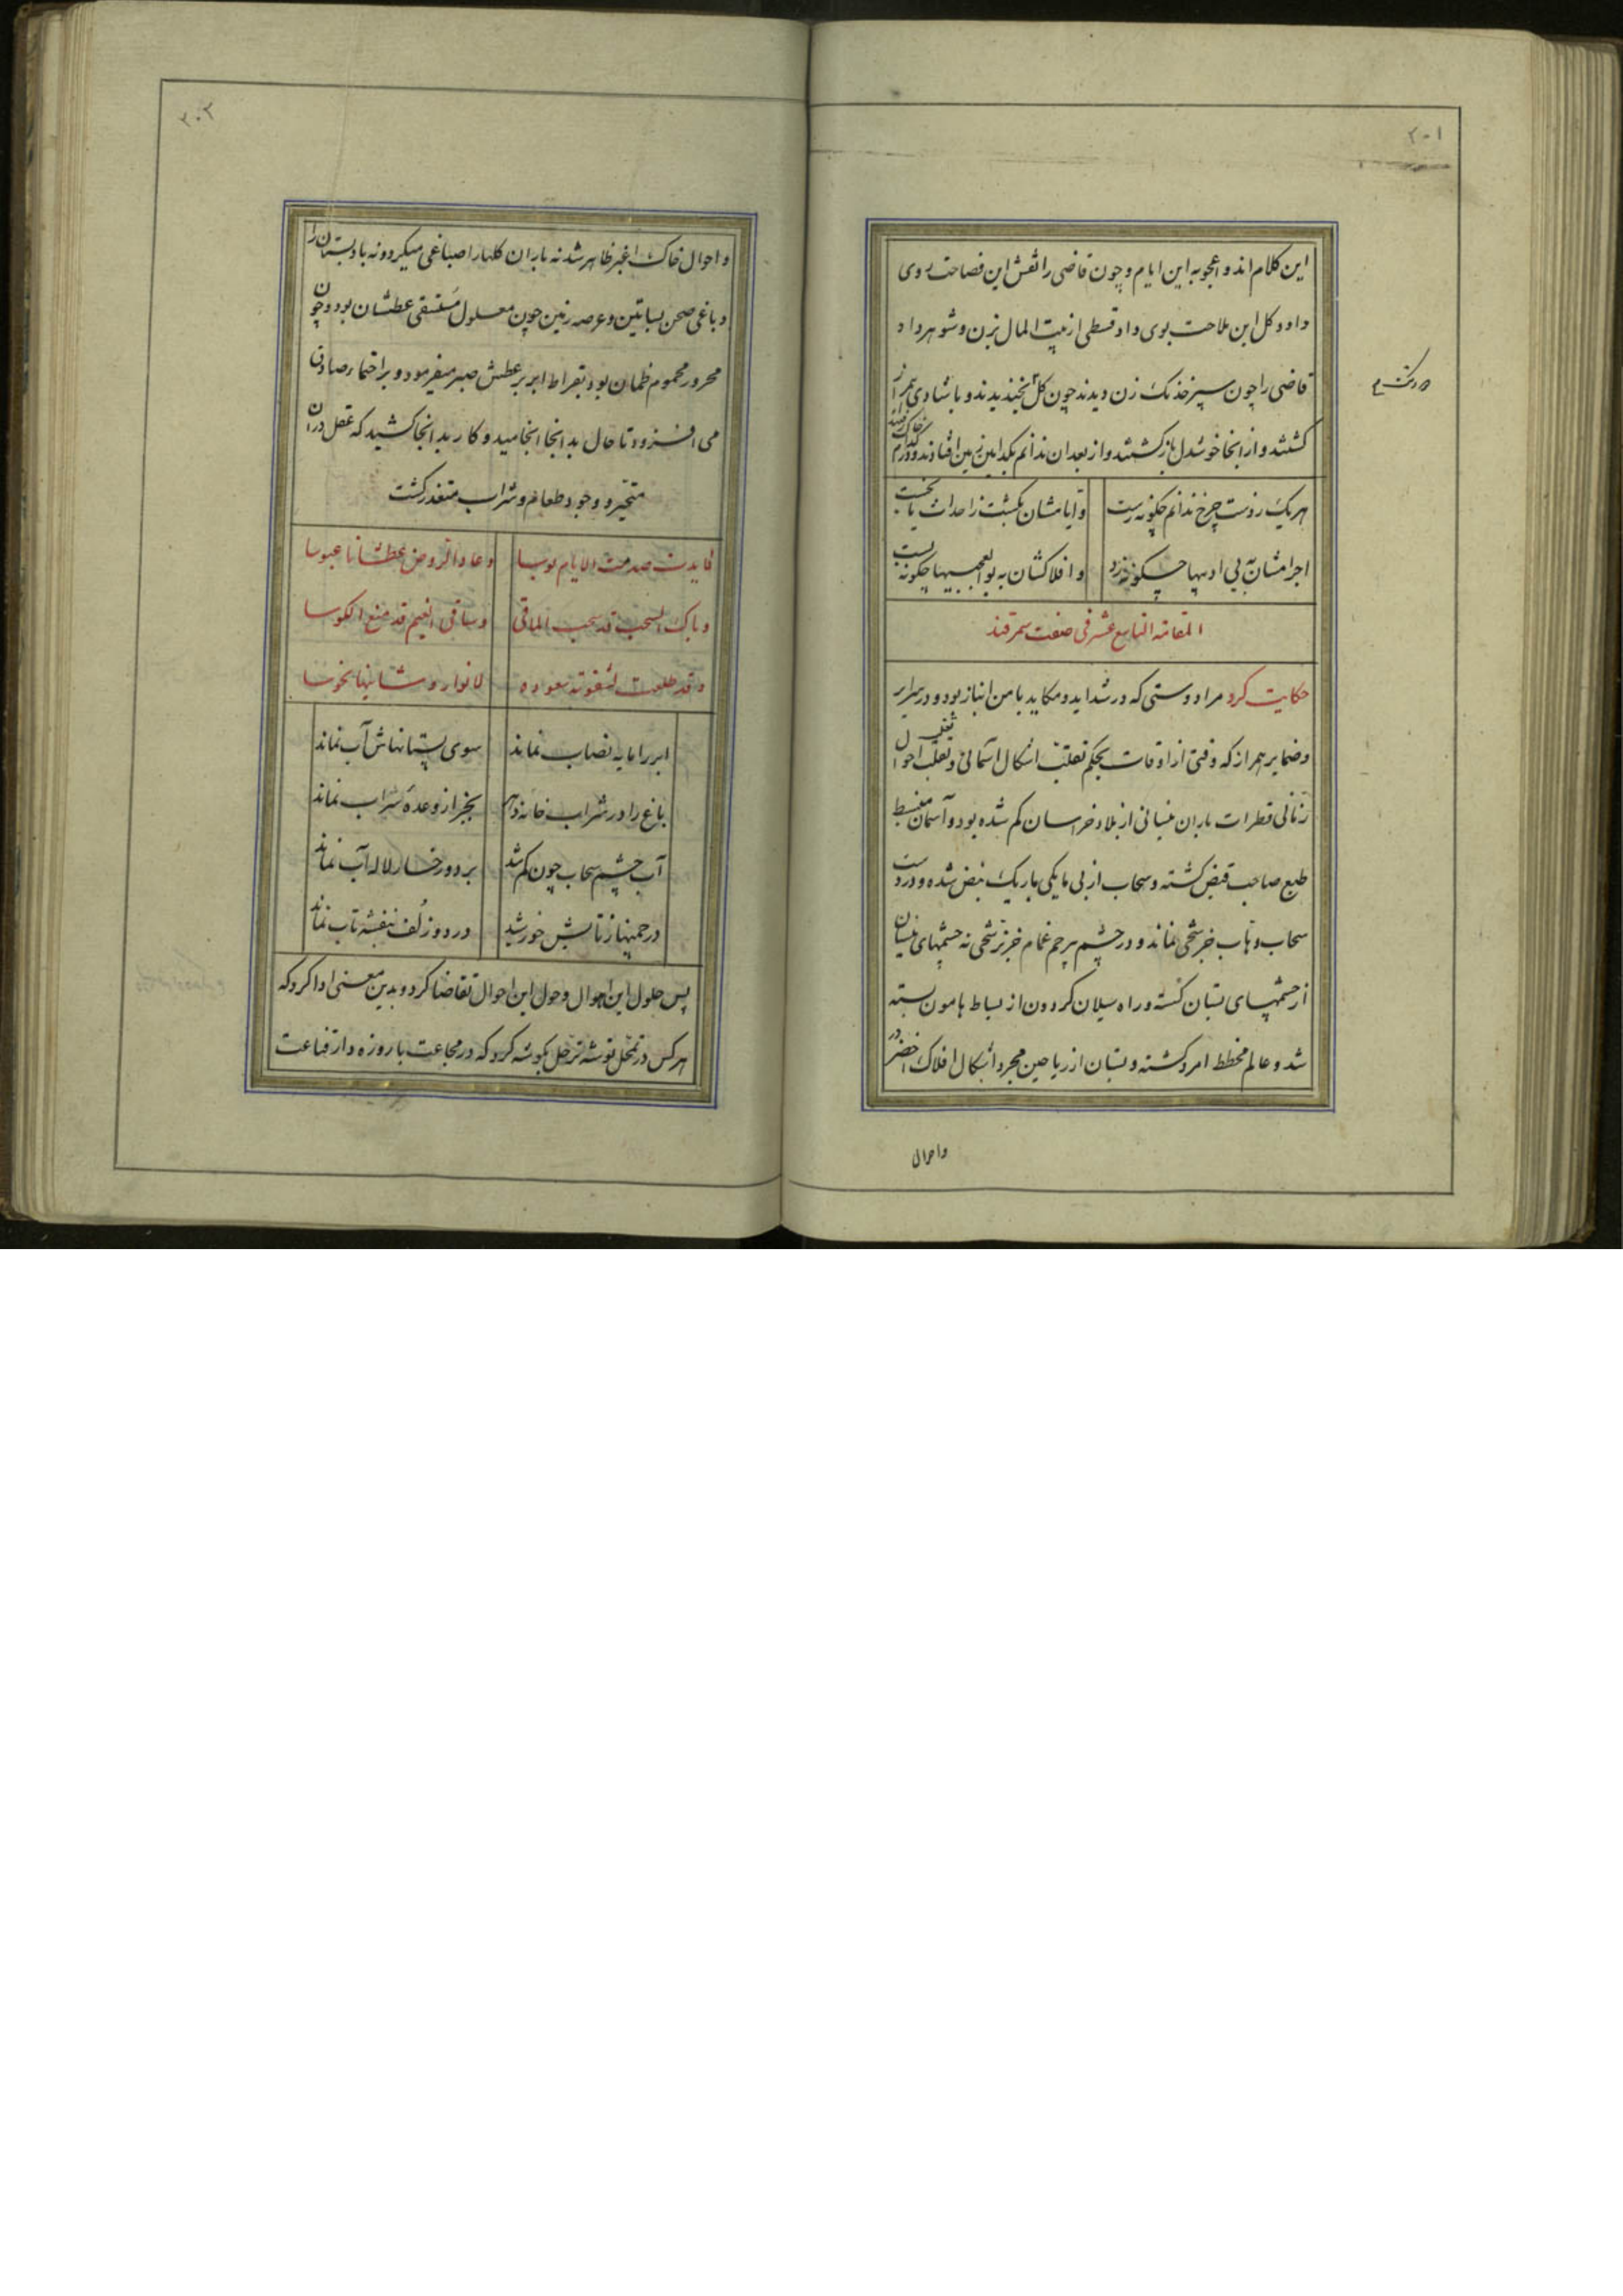 ۲۰۱
این کلام اند و اعجوبه این ایام و چون قاضی را نقش این فصاحت روی
داد و کل این ملاحت بوی داد قسطی از بیت المال بزن و شوهر داد
قاضی را چون سپر خدنک زن دیدند چون کل بخندیدند و با شادی همراز
کشتند و از انجا خوشدل باز کشتند و از بعد ان ندانم بکدامین زمین افتادند و در کدام خاک
هر یک ز دست چرخ ندانم چکونه رست
و ایامشان بکشت ز احداث یا بخست
اجرامشان به بی ادبیها چکونه زد
و افلاکشان به بوالعجبیها چکونه بست
المقامة التاسع عشر فی صفت سمرقند
حکایت کرد مرا دوستی که در شداید و مکاید با من انباز بود و در سرایر
و ضمایر همراز که وقتی از اوقات بحکم تقلب اشکال آسمانی و تقلب احوال
زمانی قطرات باران نیسانی از بلاد خراسان کم شده بود و آسمان منبسط
طبع صاحب قبض کشته و سحاب از بی مایکی باریک نبض شده و در دست
سحاب وهاب خبر شحی نماند و در چشم پر حم غمام خبر ترشحی نه چشمهای نیسان
از چشمهای بستان کسسته و راه سیلان کردون از بساط هامون بسته
شد و عالم مخطط امرد کشته و بستان از ریاحین مجرد اشکال افلاک اخضر در
و احوال
۲۰۲
و احوال خاک اغبر ظاهر شد نه باران کلها را صباغی میکرد و نه باد بستان را
دباغی صحن بساتین و عرصه زمین چون معلول مستسقی عطشان بود و چون
محرور محموم ظمآن بود بقراط ابر بر عطش صبر میفرمود و بر احتماء صادق
می افزود تا حال بد انجا انجامید و کار بد انجا کشید که عقل دران
متحیر و وجود طعام و شراب متعذر کشت
وعاد الروض عطشانا عبوسا
وساقی الغیم قد منع الکوسا
ابر را مایه نصاب نماند
سوی بستانهاش آب نماند
باغ را در شراب خانه
بجز از وعدهٔ شراب نماند
آب چشم سحاب چون کم شد
بر دو رخسار لاله آب نماند
در چمنها ز تابش خورشید
در دو زلف بنفشه تاب نماند
پس حلول این اهوال و حول این احوال تقاضا کرد و بدین معنی ادا کرد که
هر کس در تمحل توشه ترحل بکوشه کرد که در مجاعت با روزه دار قناعت